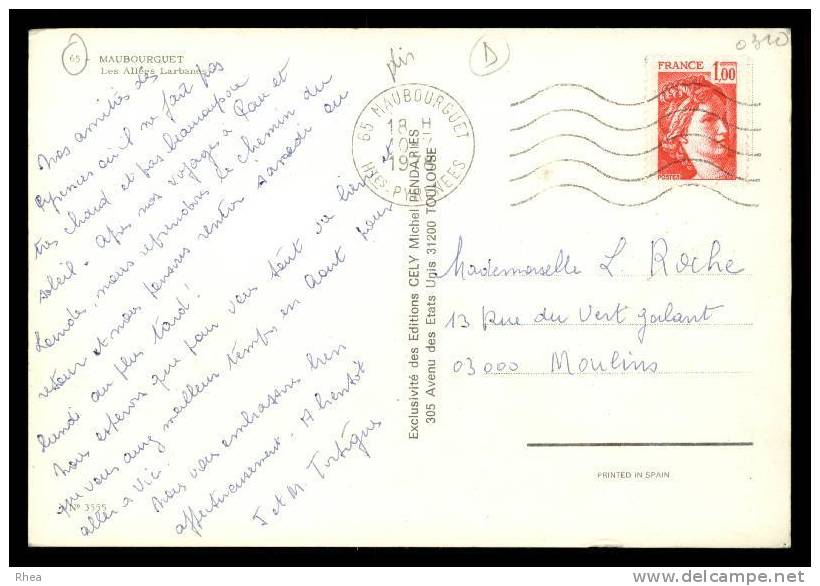 65 - MAUBOURGUET
Les Allées Larbanès
Nos amitiés des
Pyrénées où il ne fait pas
très chaud et pas beaucoup de
soleil - Après nos voyages à Pau et
Landes, nous reprendrons le chemin du
retour et nous pensons rentrer samedi ou
lundi au plus tard!
Nous espérons que pour vous tout va bien et
que vous aurez meilleur temps en Août pour
aller à Vic.
Nous vous embrassons bien
affectueusement - A bientôt
J et M. Tortigues
N° 3555
plis
D
0310
65 MAUBOURGUET
18 H
HTES PYRENEES
FRANCE 1,00
POSTES
Exclusivité des Editions CELY Michel PENDARIES
305 Avenue des Etats Unis 31200 TOULOUSE
Mademoiselle L. Roche
13 Rue du Vert galant
03000 Moulins
PRINTED IN SPAIN
Rhea
http://www.delcampe.net